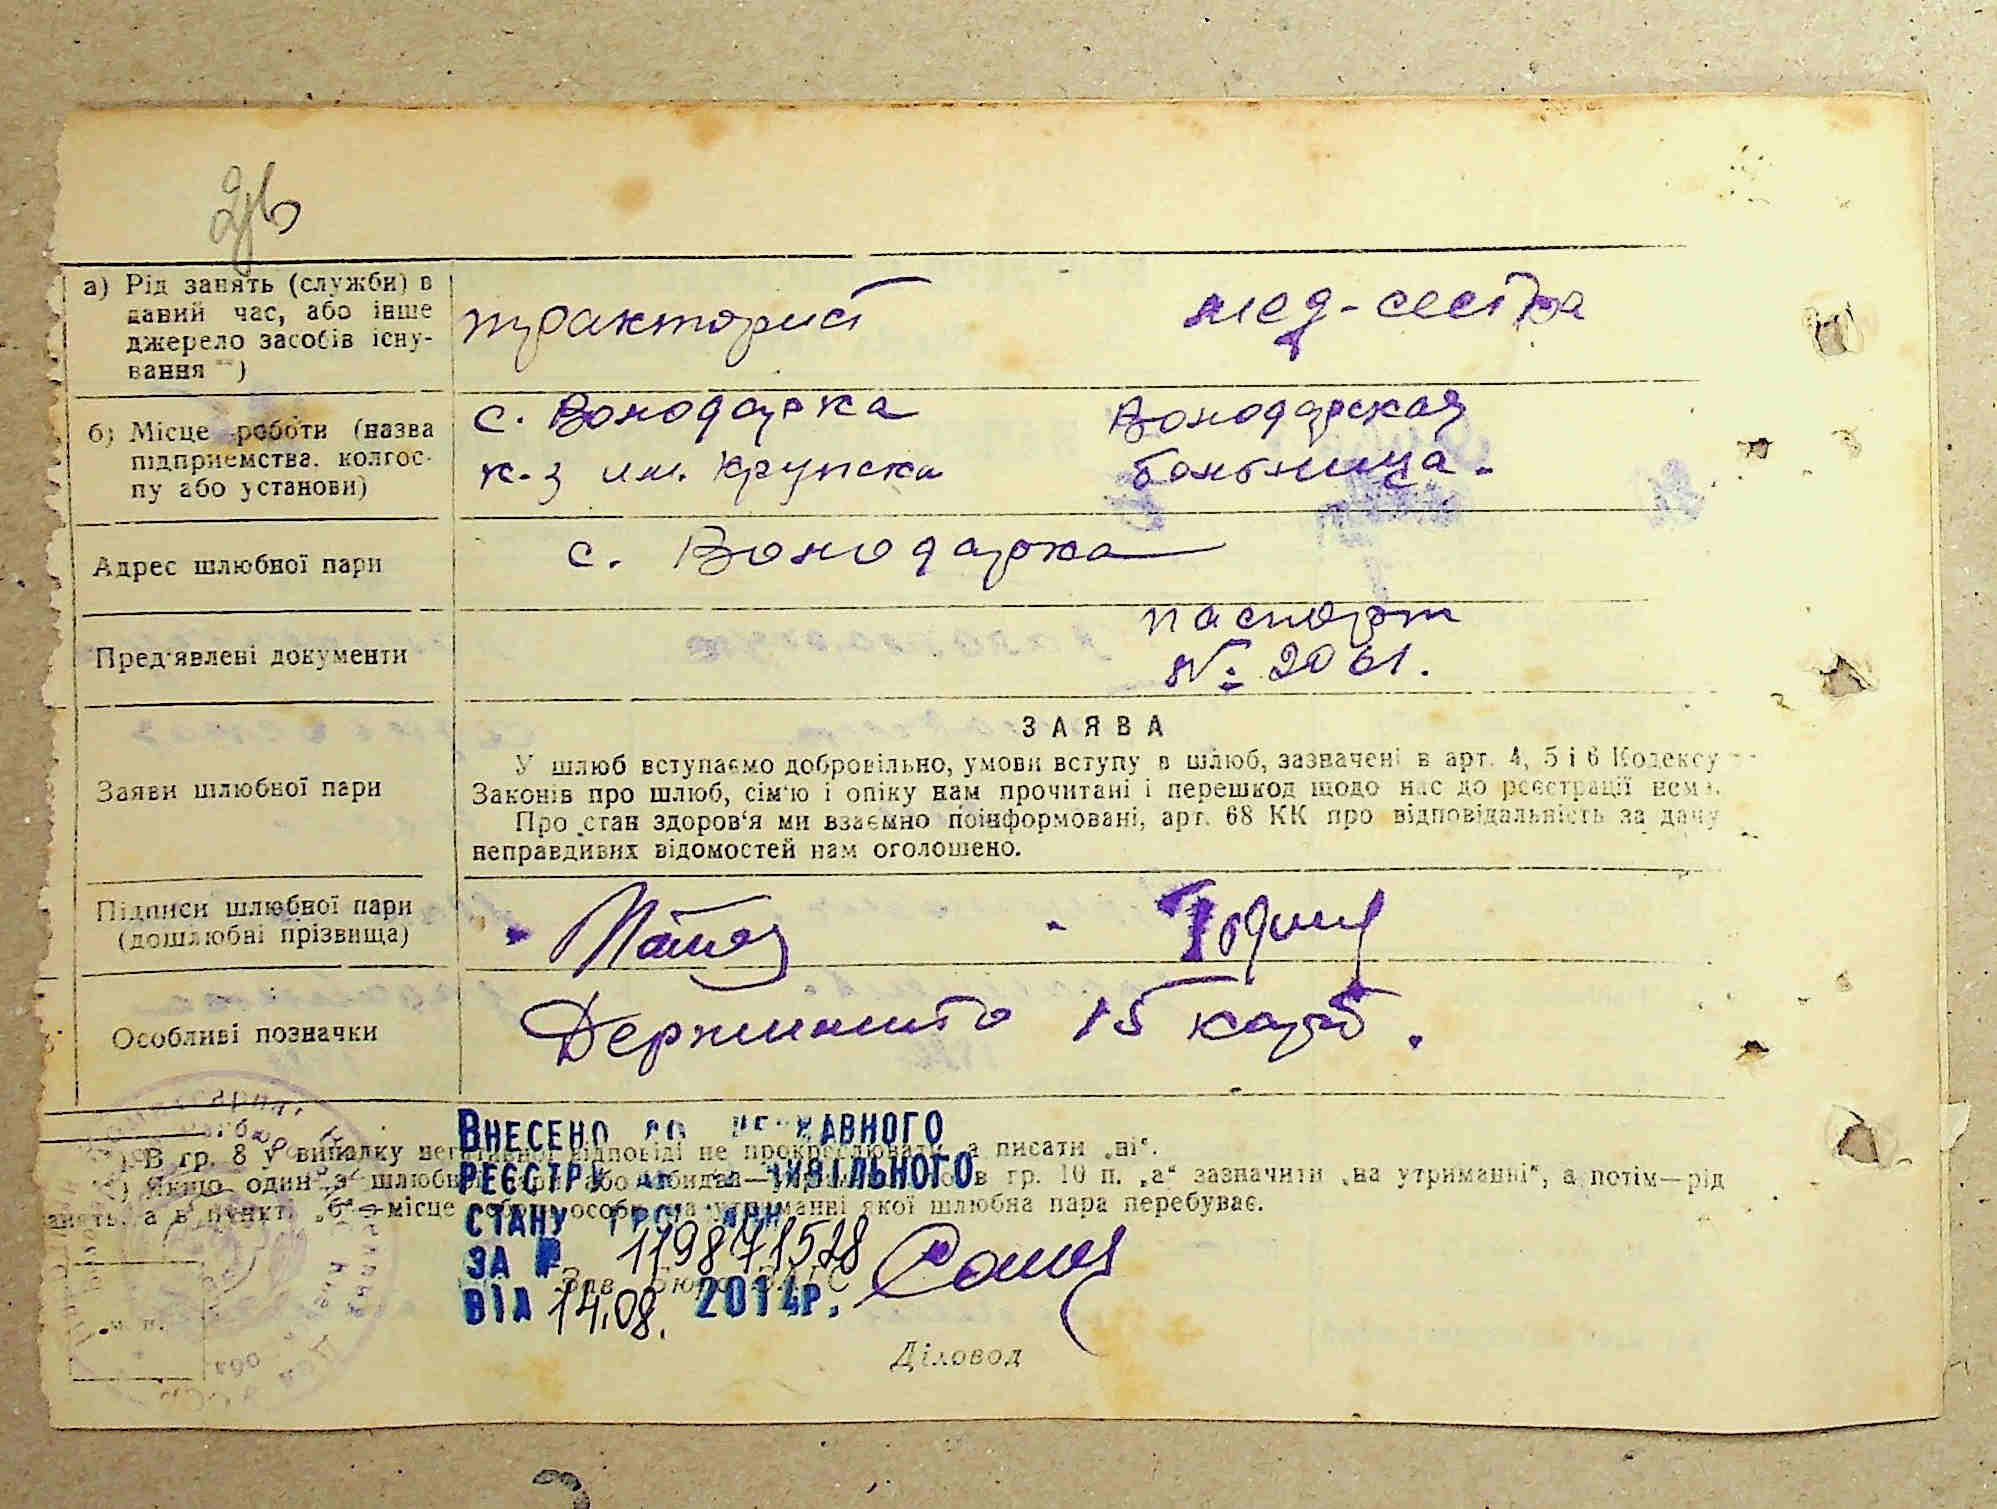 а) Рід занять (служби) в
даний час, або інше
джерело засобів існу-
вання **)
тракторист
мед-сестра
б) Місце роботи (назва
підприємства, колгос-
пу або установи)
с. Володарка
к-з им. Крупска
Володарская
больница.
Адрес шлюбної пари
с. Володарка
Пред'явлені документи
паспорт
№ 2061.
Заяви шлюбної пари
ЗАЯВА
У шлюб вступаємо добровільно, умови вступу в шлюб, зазначені в арт. 4, 5 і 6 Кодексу
Законів про шлюб, сім'ю і опіку нам прочитані і перешкод щодо нас до реєстрації нема.
Про стан здоров'я ми взаємно поінформовані, арт. 68 КК про відповідальність за дачу
неправдивих відомостей нам оголошено.
Підписи шлюбної пари
(дошлюбні прізвища)
Особливі позначки
Держмито 15 карб.
) В гр. 8 у випадку негативної відповіді не прокреслювати, а писати „ні“.
) Якщо один з шлюбної пари або обидва— в гр. 10 п. „а“ зазначити „на утриманні“, а потім—рід
занять, а в пункті „б“—місце роботи особи, на утриманні якої шлюбна пара перебуває.
ВНЕСЕНО ДО ДЕРЖАВНОГО
РЕЄСТРУ АКТІВ ЦИВІЛЬНОГО
СТАНУ ГРОМАДЯН
ЗА № 119871528
ВІД 14.08. 2014р.
Зав. бюро ЗАГС
м. п.
Діловод